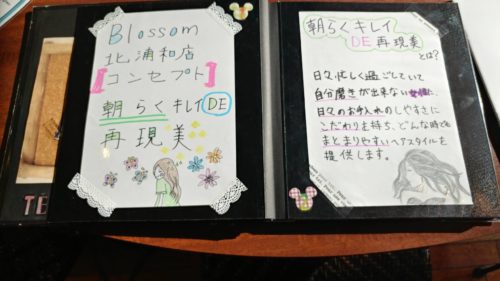 Blossom
北浦和店
【コンセプト】
朝らくキレイDE
再現美
TE
朝らくキレイ
DE再現美
とは?
日々忙しく過ごしていて
自分磨きが出来ない女性に、
日々のお手入れのしやすさに
こだわりを持ち、どんな時でも
まとまりやすいヘアスタイルを
提供します。